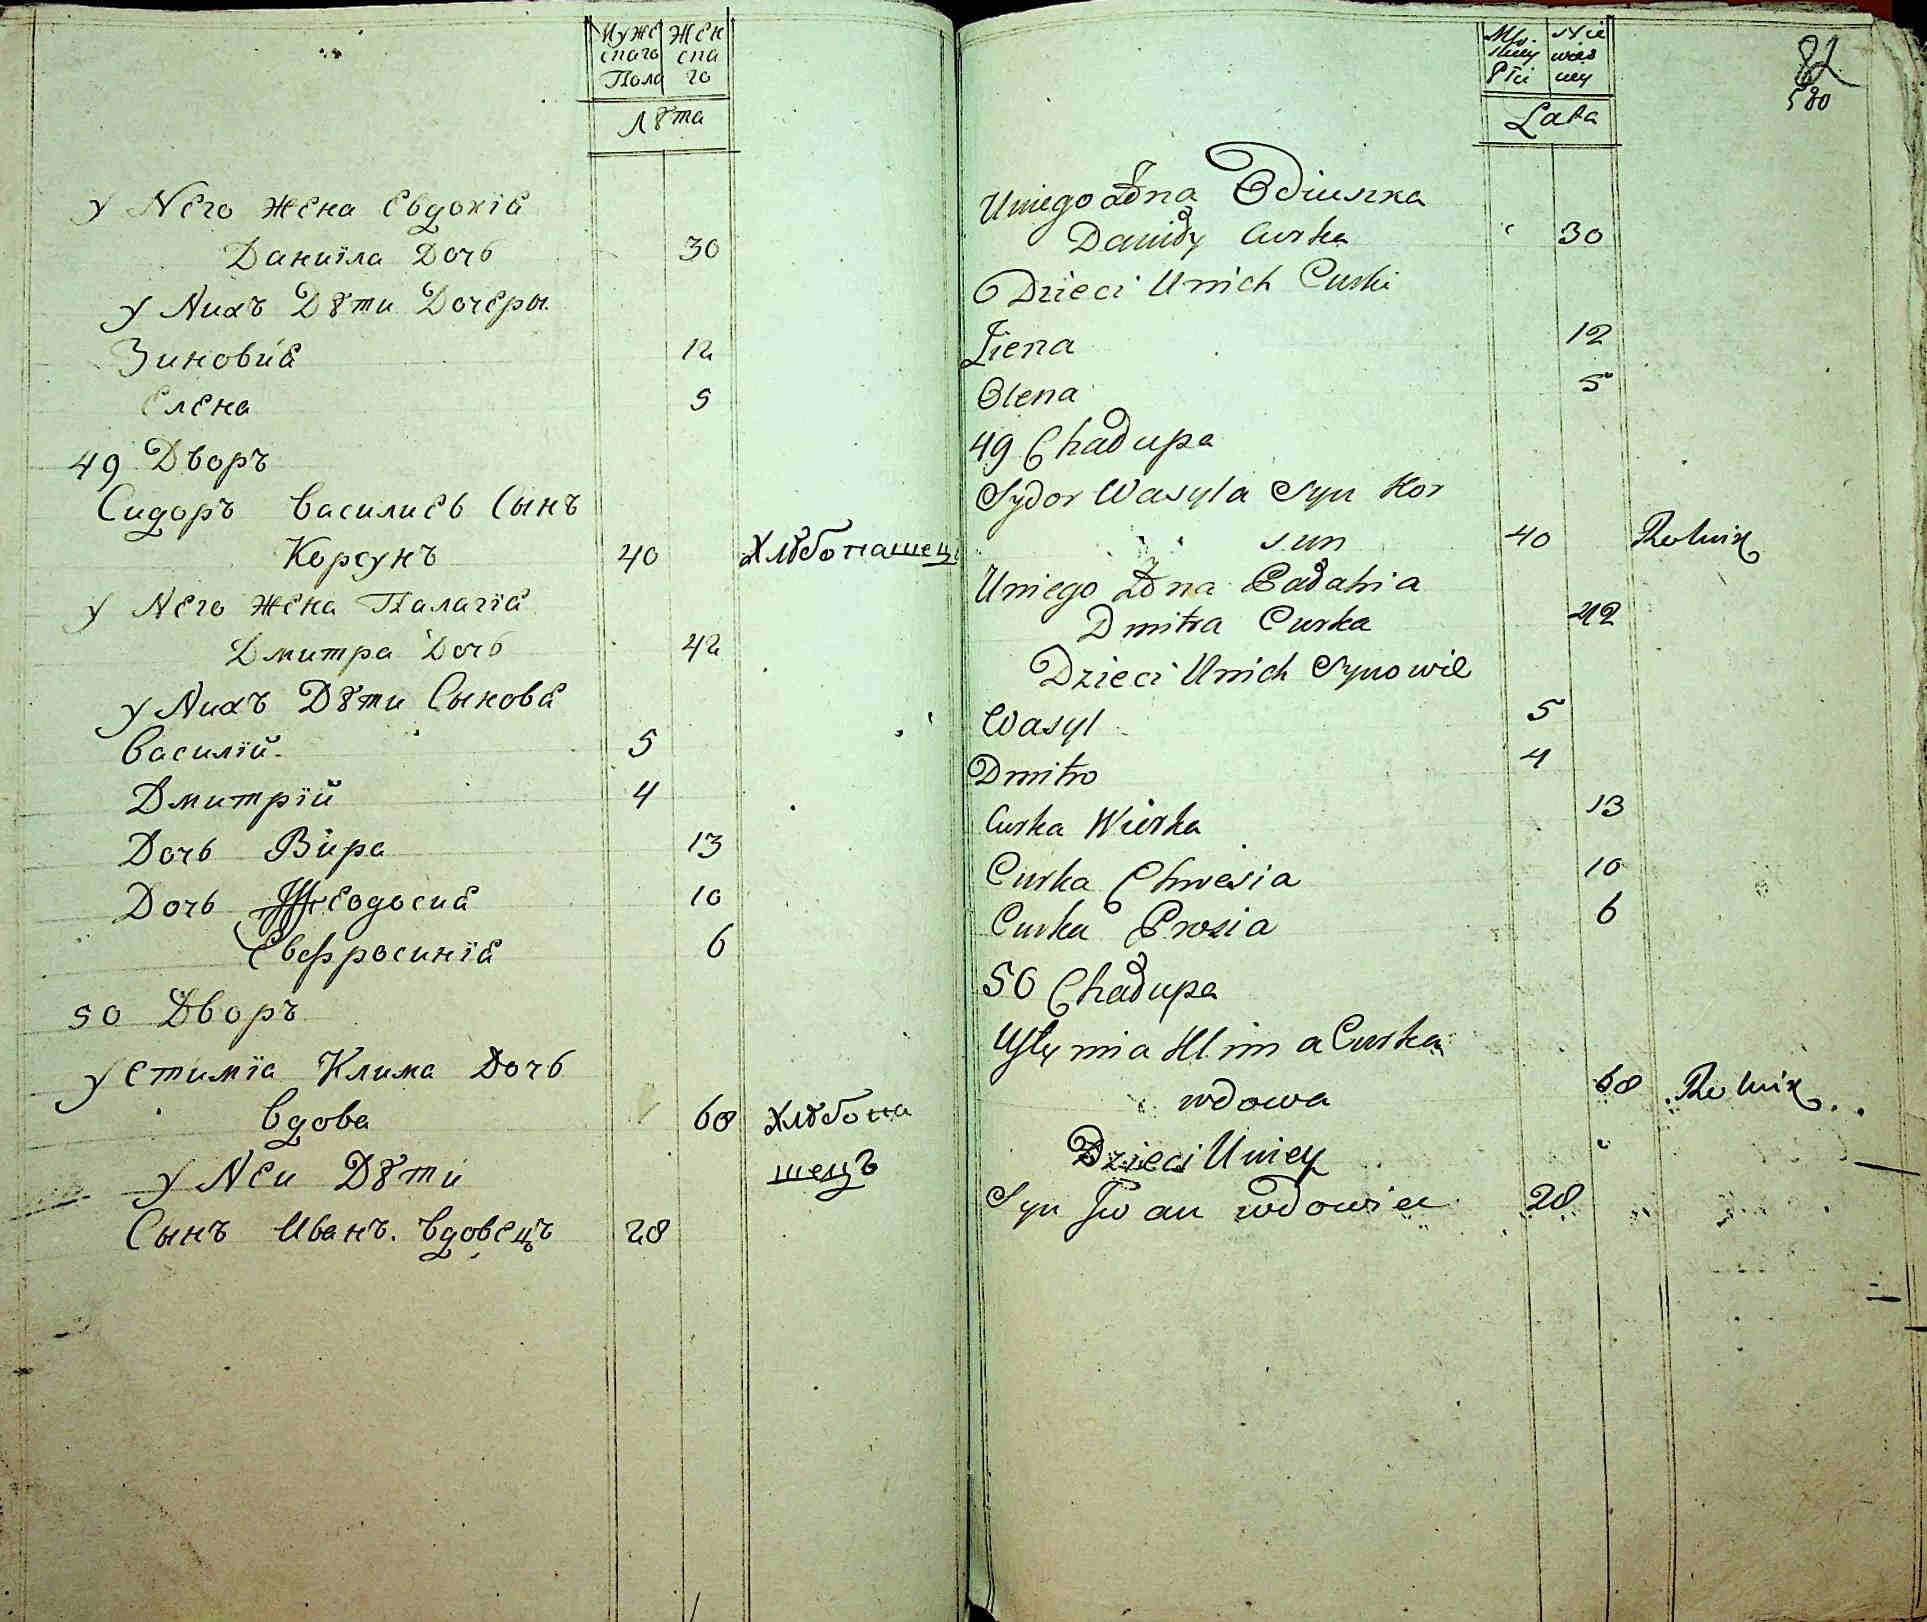 Мужс Жен
скаго ска
Пола го
Лѣта
у Него жена Евдокїа
Даниїла Дочь 30
у Нихъ Дѣти Дочеры
Зиновиа 12
Елена 5
49 Дворъ
Сидоръ Василиев Сынъ
Корсунъ 40 Хлѣбопашец
у Него жена Палагїа
Дмитра Дочь 42
у Нихъ Дѣти Сыновѣ
Василїй 5
Дмитрїй 4
Дочь Вира 13
Дочь Феодосиа 10
Евфросинїа 6
50 Дворъ
устимїа Клима Дочь
Вдова 60 Хлѣбопа
у Неи Дѣти шецъ
Сынъ Иванъ Вдовецъ 28
82
580
Płci
Lata
Uniego Żona Odiuszka
Daniły Curka 30
Dzieci Unich Curki
Ziena 12
Olena 5
49 Chałupa
Sydor Wasyla Syn Kor
sun 40 Rolnik
Uniego Żona Pałahia
Dmitra Curka 42
Dzieci Unich Synowie
Wasyl 5
Dmitro 4
Curka Wierka 13
Curka Chwesia 10
Curka Prosia 6
50 Chałupa
Ustymia Klima Curka
wdowa 60 Rolnik
Dzieci Uniey
Syn Iwan wdowiec 28